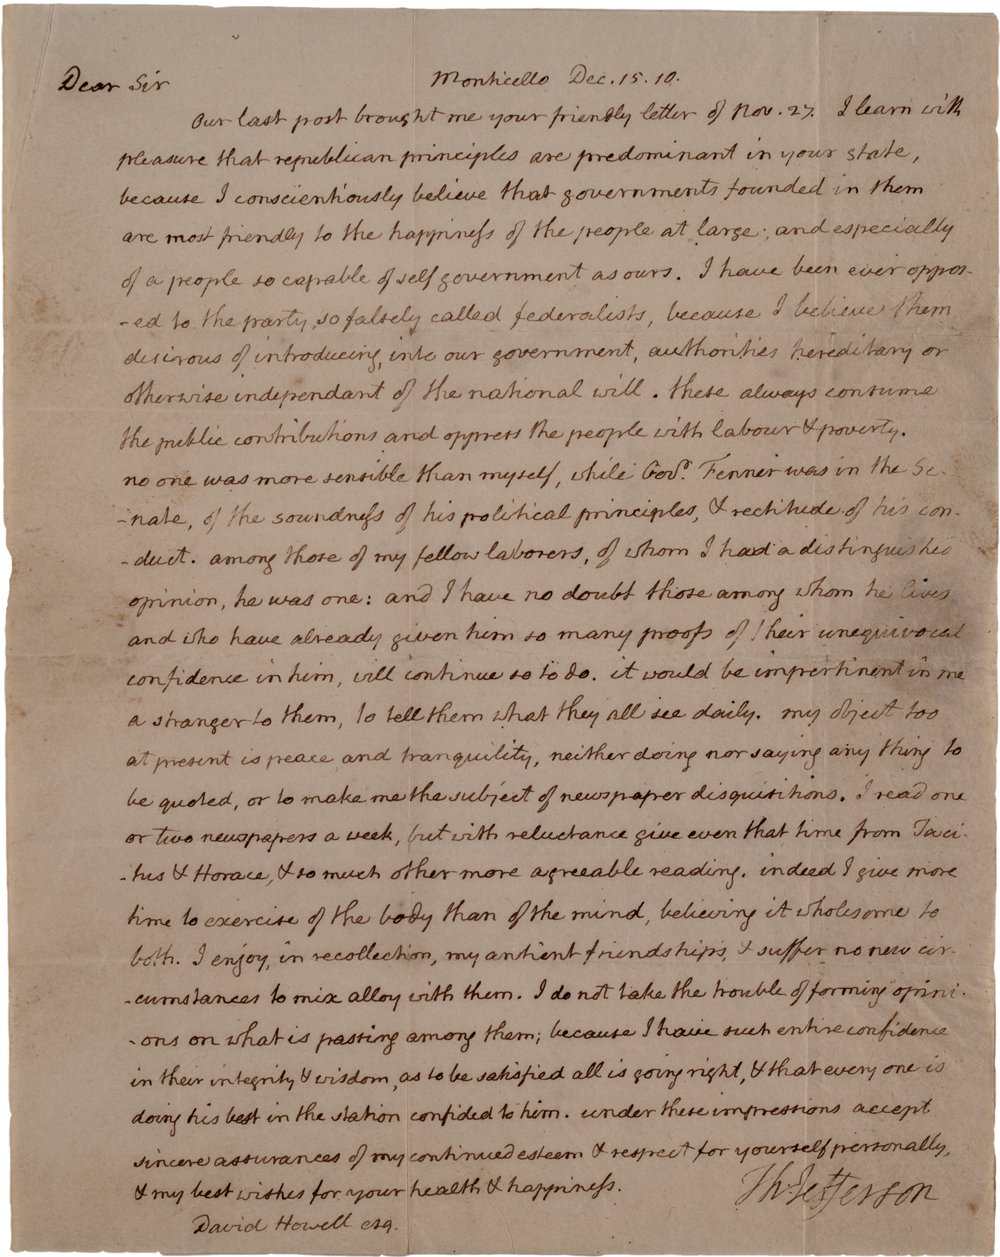 Dear Sir Monticello Dec. 15. 10.
Our last post brought me your friendly letter of Nov. 27. I learn with
pleasure that republican principles are predominant in your state,
because I conscientiously believe that governments founded in them
are most friendly to the happiness of the people at large; and especially
of a people so capable of self government as ours. I have been ever oppos-
-ed to the party, so falsely called federalists, because I believe them
desirous of introducing, into our government, authorities hereditary or
otherwise independant of the national will. these always consume
the public contributions and oppress the people with labour & poverty.
no one was more sensible than myself, while Govr. Fenner was in the Se-
-nate, of the soundness of his political principles, & rectitude of his con-
-duct. among those of my fellow laborers, of whom I had a distinguished
opinion, he was one: and I have no doubt those among whom he lives
and who have already given him so many proofs of their unequivocal
confidence in him, will continue so to do. it would be impertinent in me
a stranger to them, to tell them what they all see daily. my object too
at present is peace and tranquility, neither doing nor saying any thing to
be quoted, or to make me the subject of newspaper disquisitions. I read one
or two newspapers a week, but with reluctance give even that time from Taci-
-tus & Horace, & so much other more agreeable reading. indeed I give more
time to exercise of the body than of the mind, believing it wholesome to
both. I enjoy, in recollection, my antient friendships, & suffer no new cir-
-cumstances to mix alloy with them. I do not take the trouble of forming opini-
-ons on what is passing among them; because I have such entire confidence
in their integrity & wisdom, as to be satisfied all is going right, & that every one is
doing his best in the station confided to him. under these impressions accept
sincere assurances of my continued esteem & respect for yourself personally,
& my best wishes for your health & happiness.
Th: Jefferson
David Howell esq.